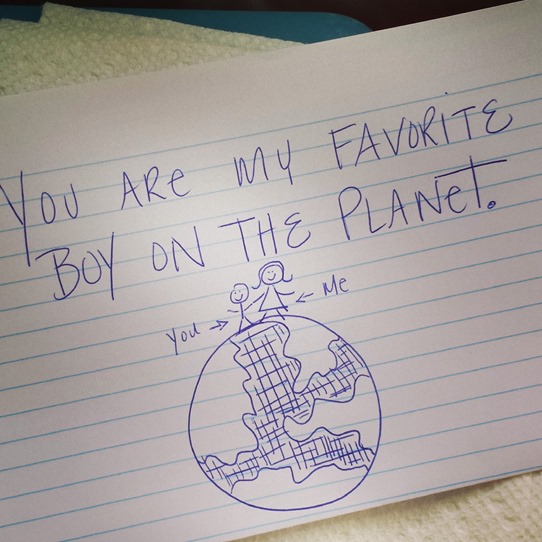 YOU ARe MY FAVORITE
BOY ON THE PLANeT.
Me
You